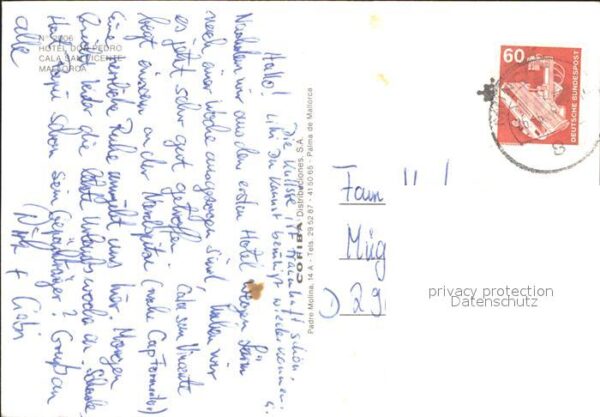 N° 3606
HOTEL DON PEDRO
CALA SAN VICENTE
MALLORCA
Hallo!
Nachdem wir aus dem ersten Hotel wegen Lärm
nach einer Woche ausgezogen sind, haben wir
es jetzt sehr gut getroffen. Cala San Vicente
liegt einsam an der Nordspitze (nahe Cap Formentor)
Eine herrliche Ruhe umgibt uns hier. Morgen
bricht leider die letzte Urlaubswoche an. Schade.
Hat schon sein Gepäckträger? Gruß an
alle
Die Kulisse ist traumhaft schön.
Du kannst beruhigt wiederkommen!
COFIBA Distribuciones, S.A.
Padre Molina, 14 A - Tels. 29 52 87 - 41 50 65 - Palma de Mallorca
60
DEUTSCHE BUNDESPOST
Fam
Müg
D 29
privacy protection
Datenschutz